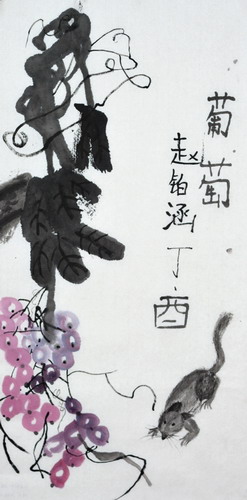 葡萄
赵铂涵丁酉